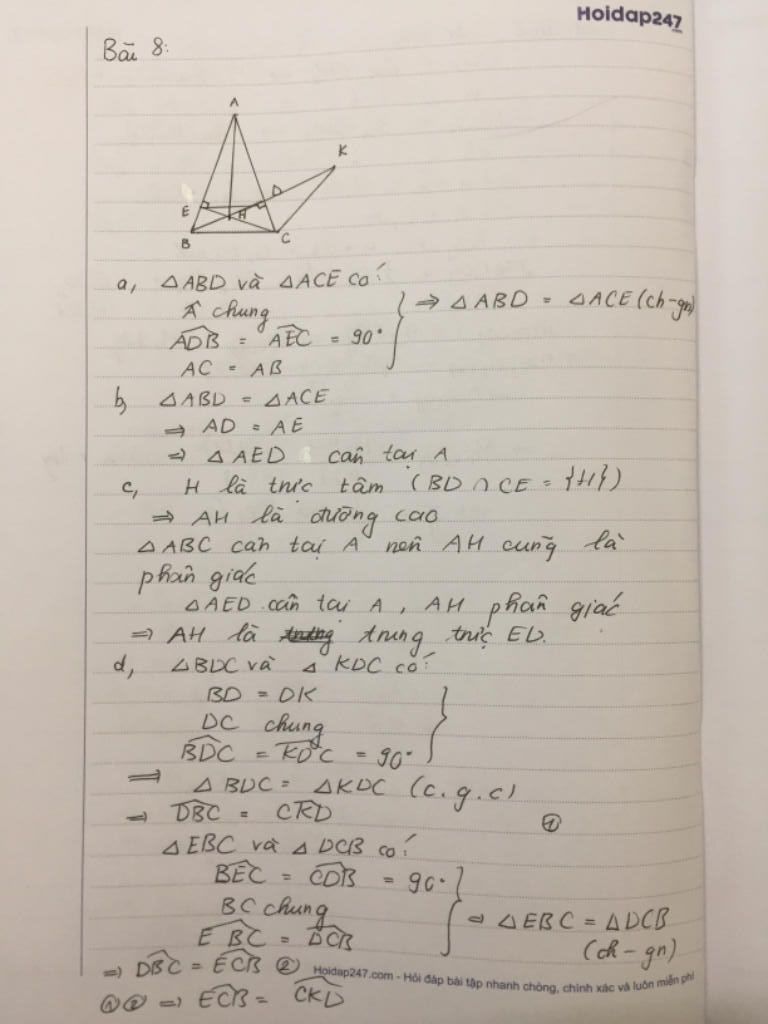 Hoidap247
.com
Bài 8:
A
K
E
D
H
B
C
a, △ABD và △ACE có:
Â chung
⇒ △ABD = △ACE (ch-gn)
ADB̂ = AEĈ = 90°
AC = AB
b, △ABD = △ACE
⇒ AD = AE
⇒ △AED cân tại A
c, H là trực tâm (BD ∩ CE = {H})
⇒ AH là đường cao
△ABC cân tại A nên AH cũng là
phân giác
△AED cân tại A, AH phân giác
⇒ AH là trung trực ED.
d, △BDC và △KDC có:
BD = DK
DC chung
BDĈ = KDĈ = 90°
⇒ △BDC = △KDC (c.g.c)
⇒ DBĈ = CKD̂ ①
△EBC và △DCB có:
BEĈ = CDB̂ = 90°
BC chung
⇒ △EBC = △DCB
EBĈ = DCB̂
(ch-gn)
⇒ DBĈ = ECB̂ ②
Hoidap247.com - Hỏi đáp bài tập nhanh chóng, chính xác và luôn miễn phí
①② ⇒ ECB̂ = CKD̂